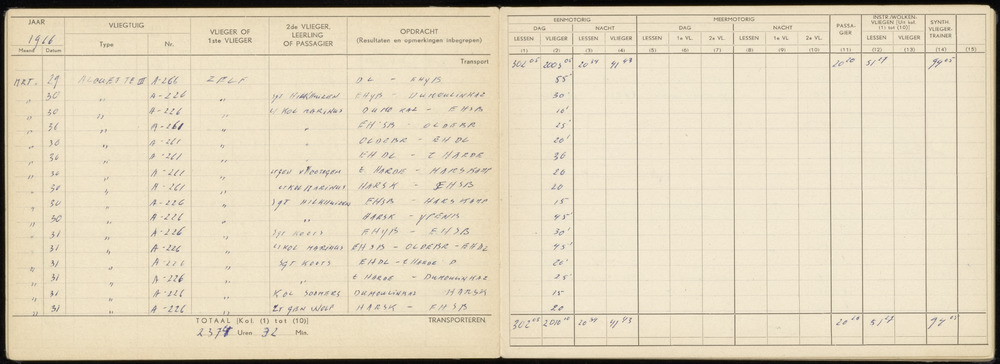 JAAR VLIEGTUIG VLIEGER OF 1ste VLIEGER 2de VLIEGER, LEERLING OF PASSAGIER OPDRACHT (Resultaten en opmerkingen inbegrepen)
1966
Maand Datum Type Nr.
Transport
MRT. 29 ALOUETTE II A-261 ZELF DL - EHYB
" 30 " A-226 " Sgt EHYB - DUMOULINKAZ
" 30 " A-226 " Lt KOL MARINUS DUMO KAZ - EHSB
" 30 " A-261 " " EHSB - OLDEBR
" 30 " A-261 " " OLDEBR - EHDL
" 30 " A-261 " " EHDL - 't HARDE
" 30 " A-261 " 't HARDE - HARSKAMP
" 30 " A-261 " Lt KOL MARINUS HARSK - EHSB
" 30 " A-226 " Sgt EHSB - HARSKAMP
" 30 " A-226 " " HARSK - YPENB
" 31 " A-226 " Sgt KOETS EHYB - EHSB
" 31 " A-226 " Lt KOL MARINUS EHSB - OLDEBR - EHDL
" 31 " A-226 " Sgt KOETS EHDL - 't HARDE
" 31 " A-226 " " 't HARDE - DUMOULINKAZ
" 31 " A-226 " KOL SOMERS DUMOULINKAZ HARSK
" 31 " A-226 " Lt GEN WOLF HARSK - EHSB
TOTAAL (Kol. (1) tot (10)) TRANSPORTEREN.
2374 Uren 32 Min.
EENMOTORIG MEERMOTORIG PASSA-GIER INSTR./WOLKEN-VLIEGEN (Uit kol. (1) t/m (10)) SYNTH. VLIEGER-TRAINER
DAG NACHT DAG NACHT
LESSEN VLIEGER LESSEN VLIEGER LESSEN 1e VL. 2e VL. LESSEN 1e VL. 2e VL. LESSEN VLIEGER
(1) (2) (3) (4) (5) (6) (7) (8) (9) (10) (11) (12) (13) (14) (15)
302 05 2003 05 20 49 41 43 20 20 51 27 94 05
55'
30'
10'
25'
20'
30
20
20
15
45'
30'
45'
20'
25'
15
20
302 05 2010 10 20 49 41 43 20 20 51 27 94 05